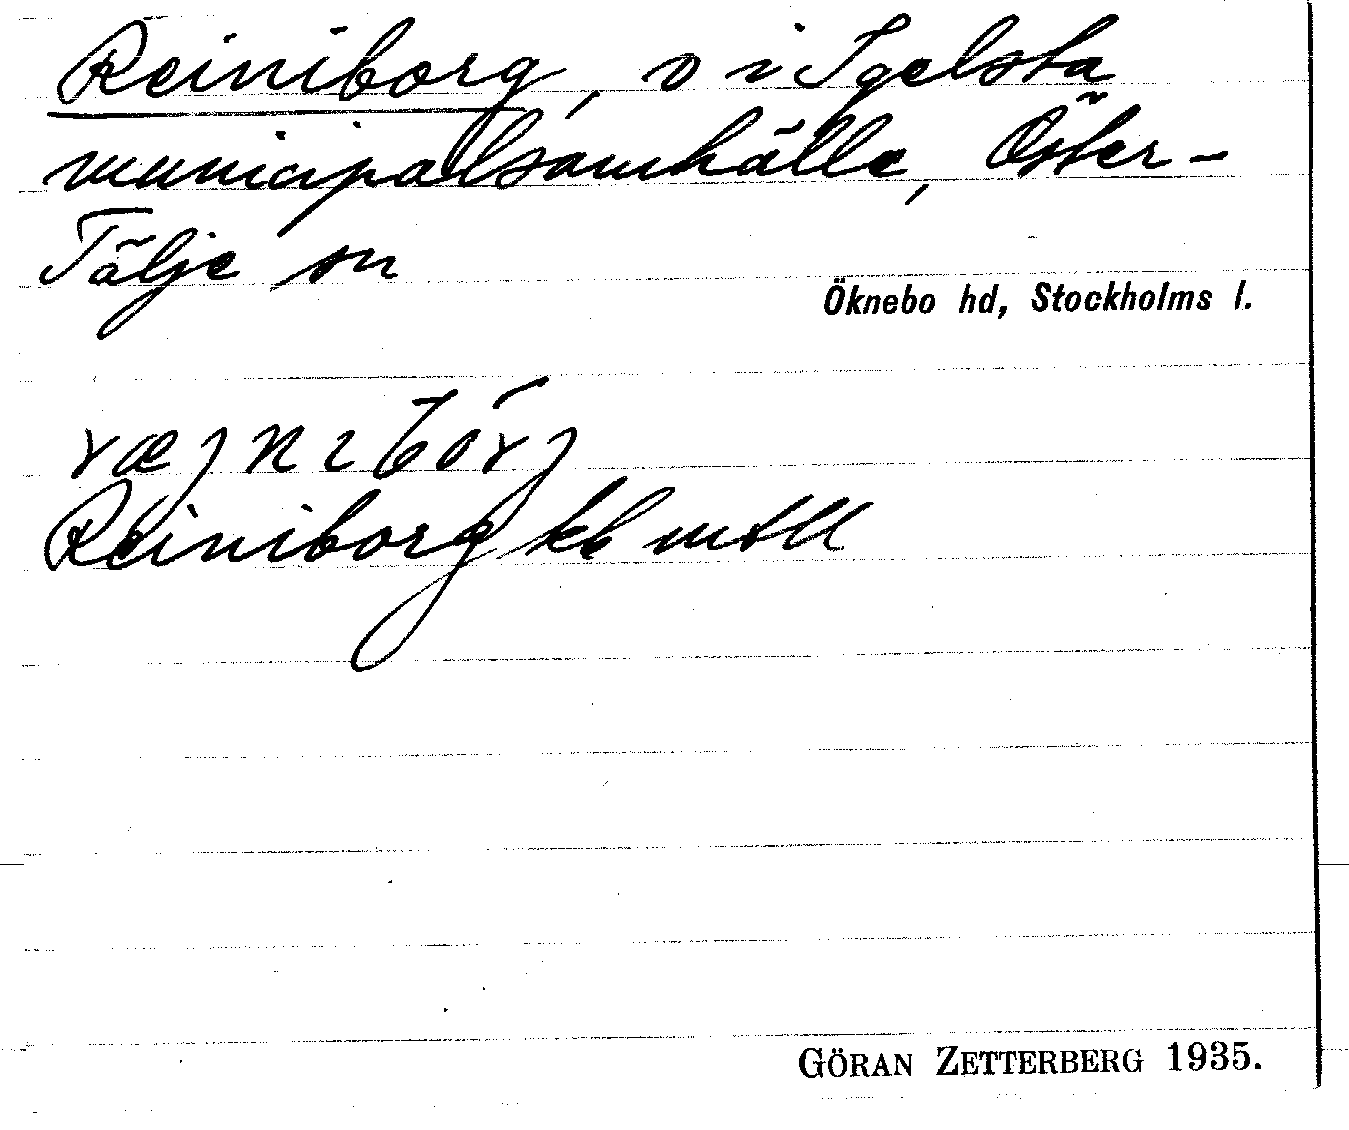 Reiniborg, v i Igelsta
municipalsamhälle, Öster-
Tälje sn
Öknebo hd, Stockholms l.
ræjnιbórj
Reiniborg kb mtll
GÖRAN ZETTERBERG 1935.